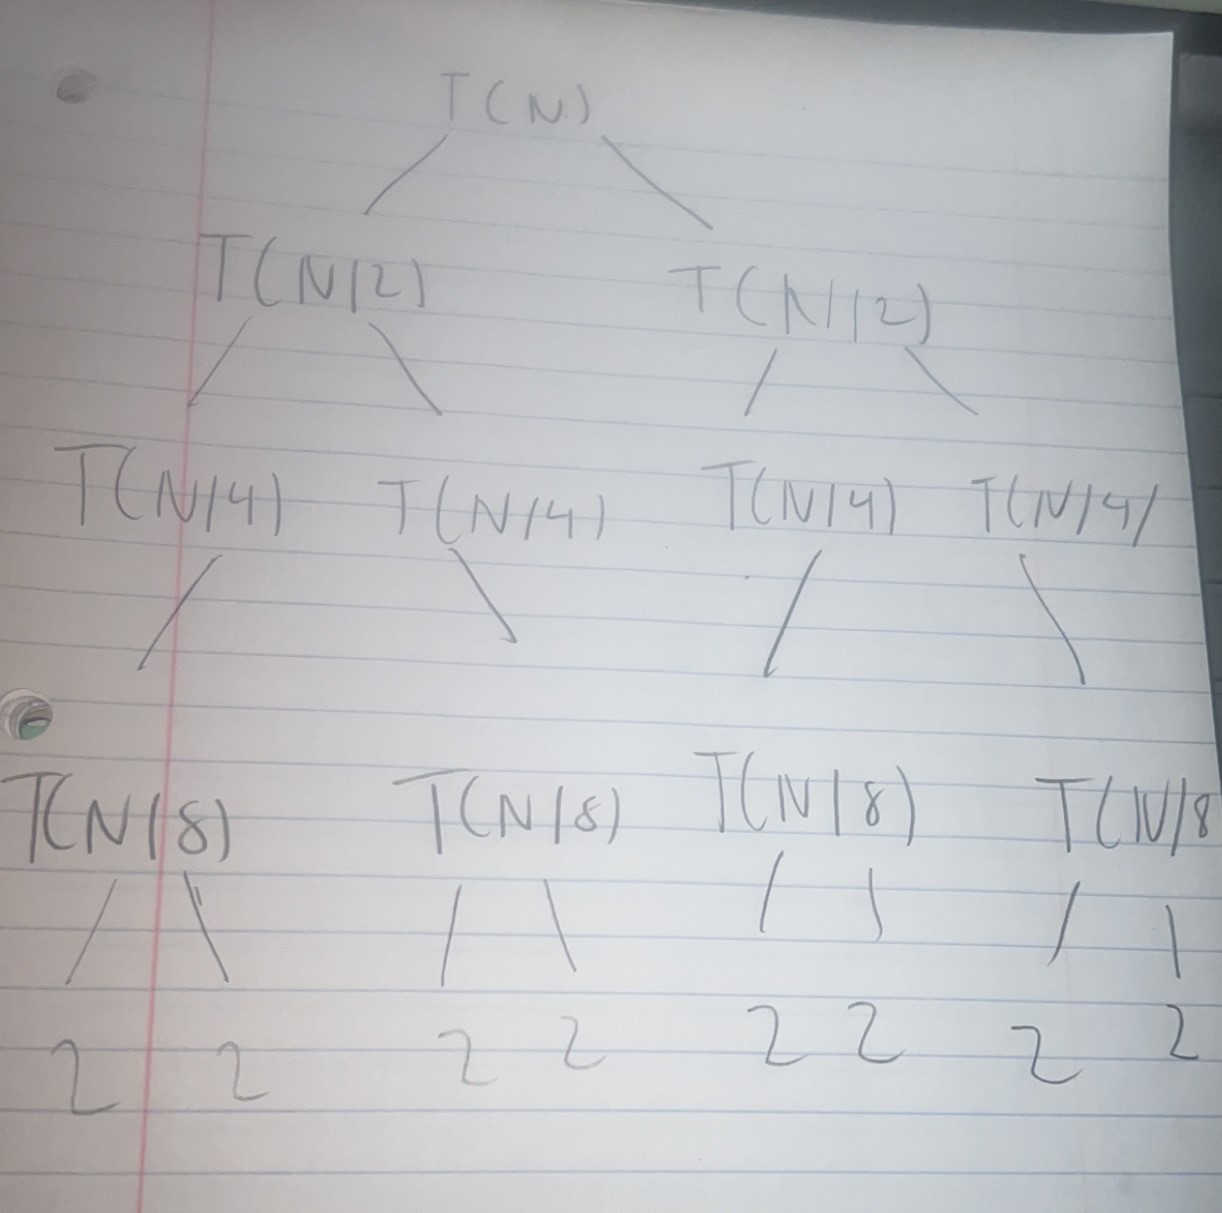 T(N)
T(N/2) T(N/2)
T(N/4) T(N/4) T(N/4) T(N/4)
T(N/8) T(N/8) T(N/8) T(N/8
2 2 2 2 2 2 2 2